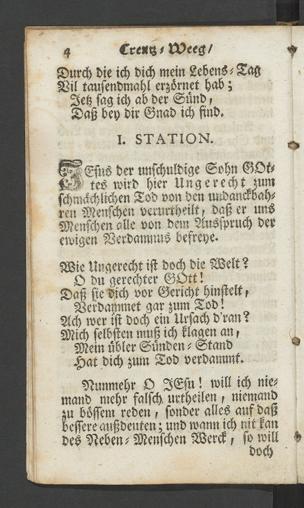 4 Creutz-Weeg/
Durch die ich dich mein Lebens-Tag
Vil tausendmahl erzörnet hab;
Jetz sag ich ab der Sünd,
Daß bey dir Gnad ich find.
I. STATION.
JEsus der unschuldige Sohn GOt-
tes wird hier Ungerecht zum
schmächlichen Tod von den undanckbah-
ren Menschen verurtheilt, daß er uns
Menschen alle von dem Ausspruch der
ewigen Verdamnus befreye.
Wie Ungerecht ist doch die Welt?
O du gerechter GOtt!
Daß sie dich vor Gericht hinstelt,
Verdammet gar zum Tod!
Ach wer ist doch ein Ursach d'ran?
Mich selbsten muß ich klagen an,
Mein übler Sünden-Stand
Hat dich zum Tod verdammt.
Nunmehr O JEsu! will ich nie-
mand mehr falsch urtheilen, niemand
zu bössem reden, sonder alles auf daß
bessere außdeuten; und wann ich nit kan
des Neben-Menschen Werck, so will
doch